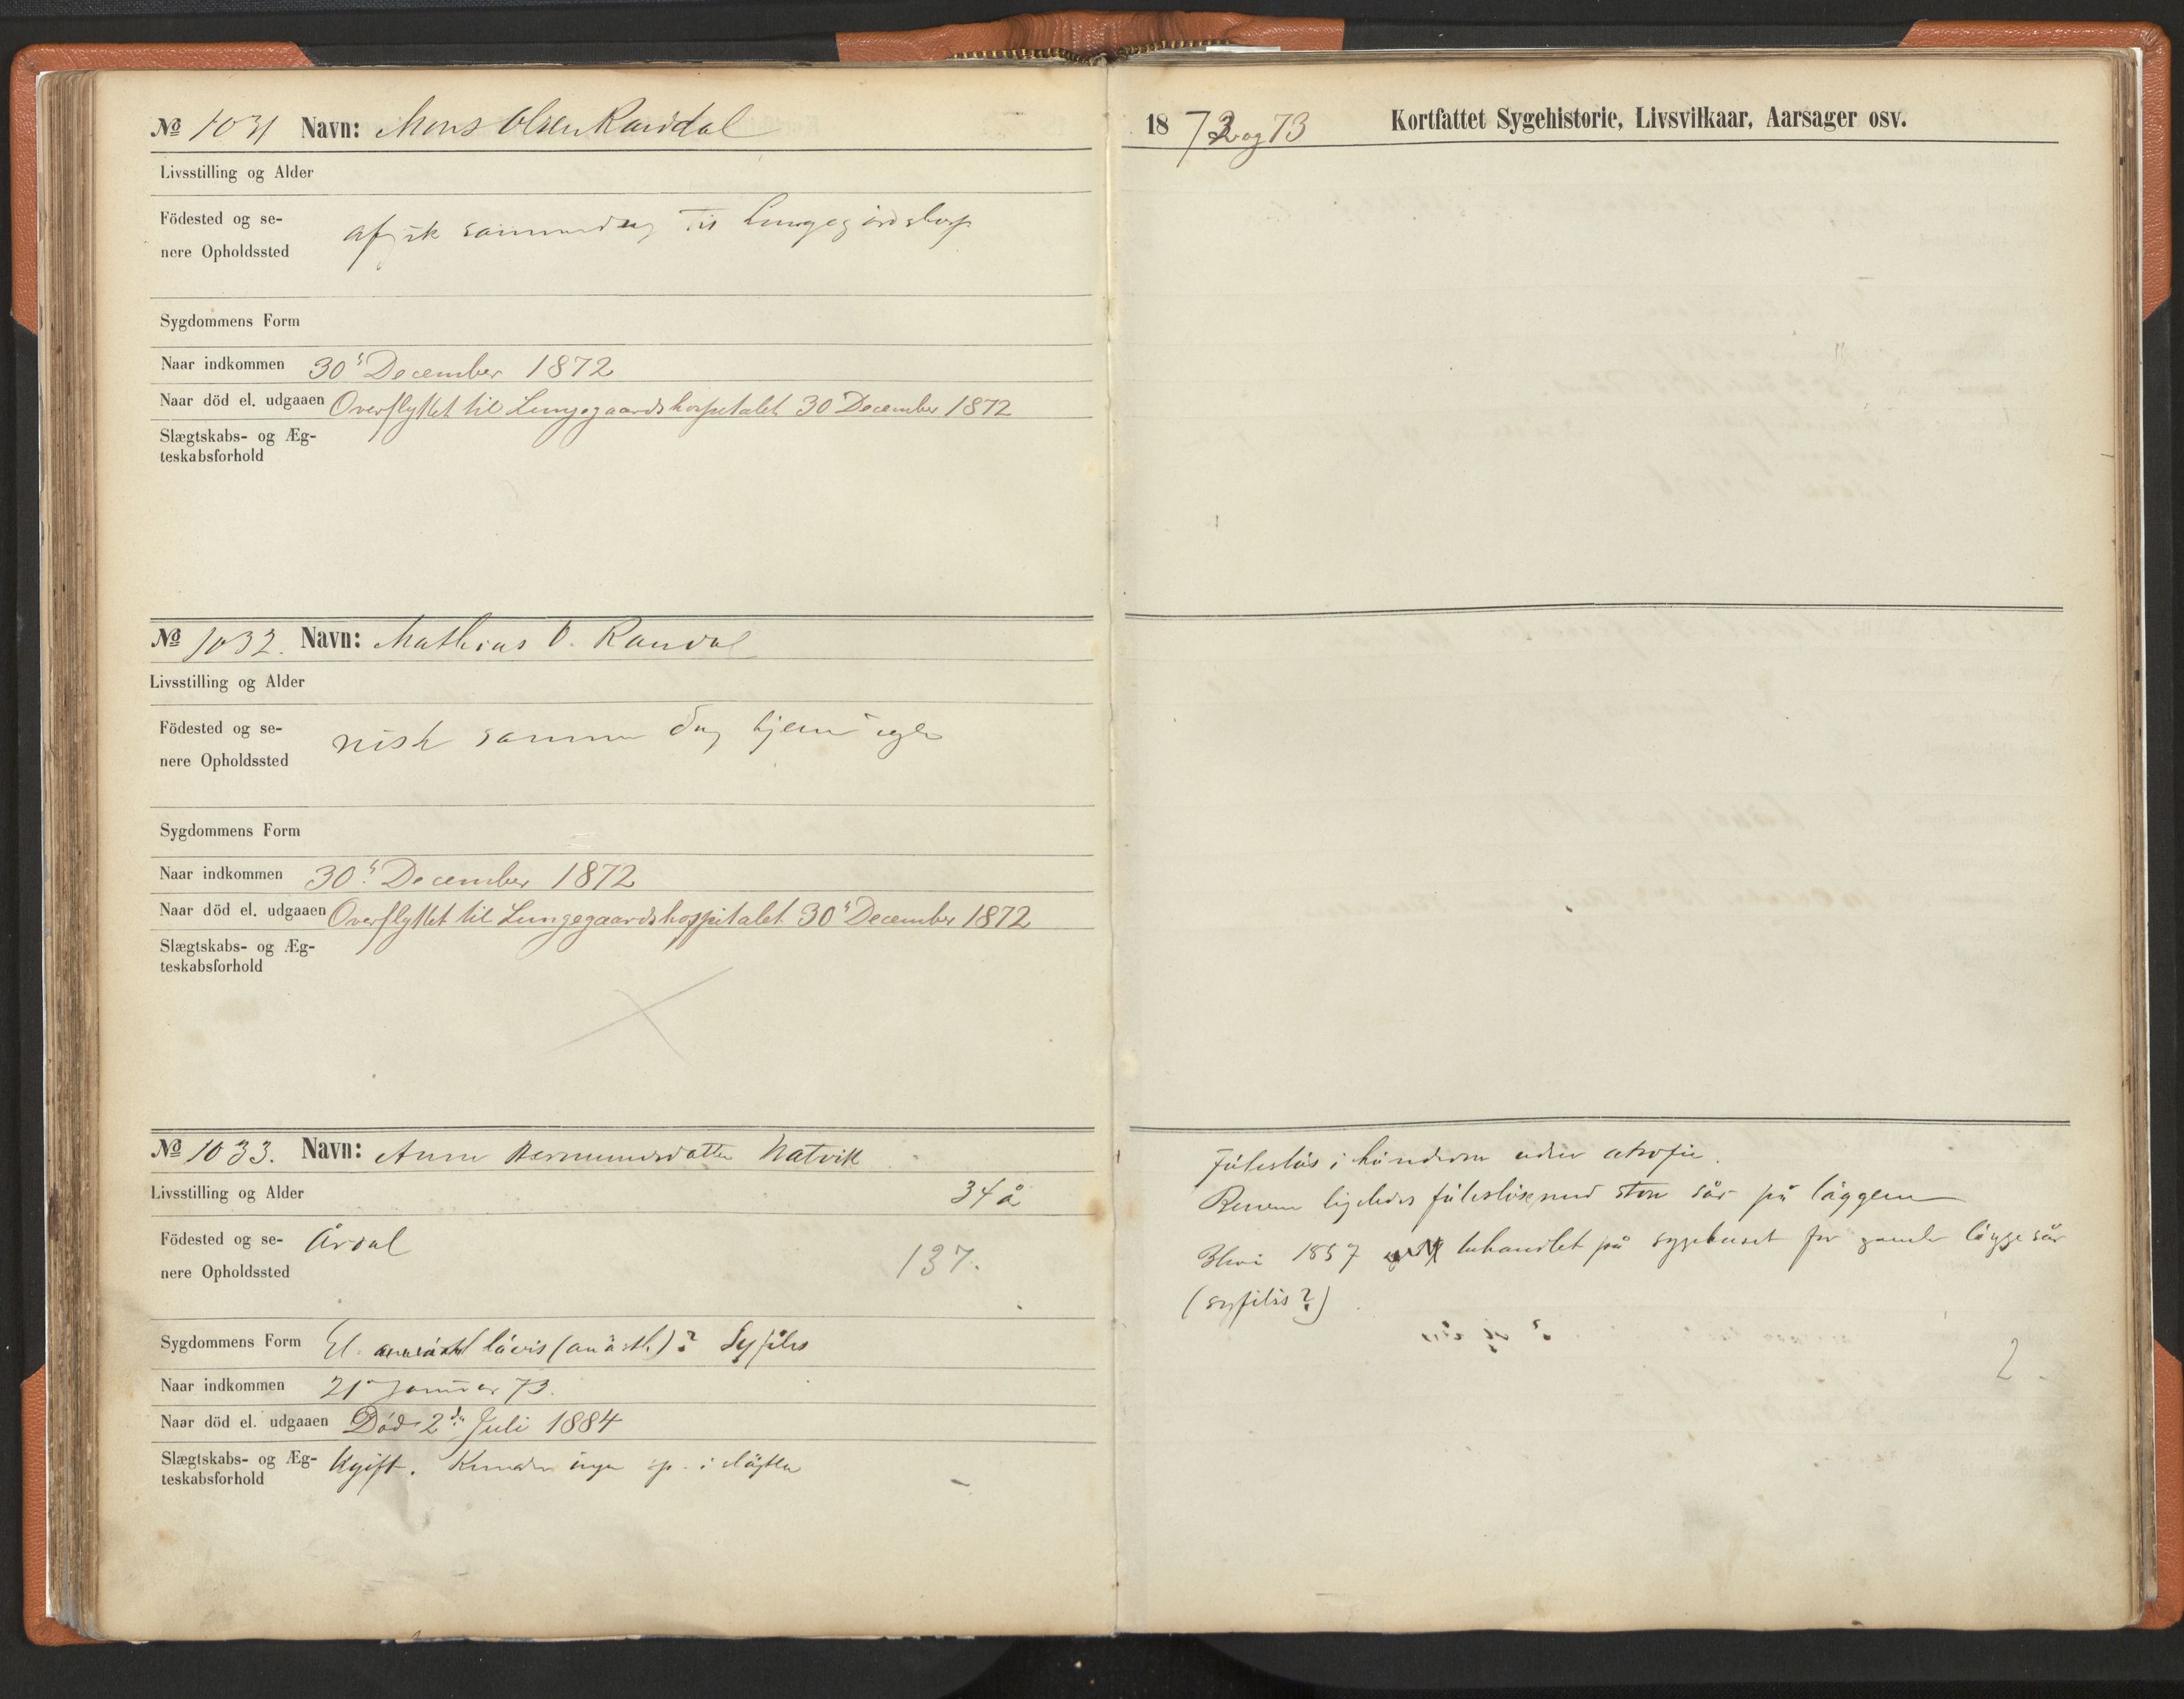 № 1031 Navn: Mons Olsen Randal
Livsstilling og Alder
Födested og se-
nere Opholdssted
afgik sammedag til Lungegårdshosp
Sygdommens Form
Naar indkommen 30 December 1872
Naar död el. udgaaen Overflyttet til Lungegaardshospitalet 30 December 1872
Slægtskabs- og Æg-
teskabsforhold
№ 1032. Navn: Mathias O. Randal
Livsstilling og Alder
Födested og se-
nere Opholdssted
samme dag hjem
Sygdommens Form
Naar indkommen 30 December 1872
Naar död el. udgaaen Overflyttet til Lungegaardshospitalet 30 December 1872
Slægtskabs- og Æg-
teskabsforhold
№ 1033. Navn: Anna Natvik
Livsstilling og Alder 34 å
Födested og se- Årdal
nere Opholdssted 137.
Sygdommens Form El. lävis (anästh.)? Syfilis
Naar indkommen 21 Januar 73.
Naar död el. udgaaen Död 2den Juli 1884
Slægtskabs- og Æg- Ugift. Kender ingen sp. i slägten
teskabsforhold
1872 og 73 Kortfattet Sygehistorie, Livsvilkaar, Aarsager osv.
Föleslös i händerne uden atrofie.
Benene ligeledes fölelöse, med store sår på läggene
Blev 1857 behandlet på sygehuset for gamle läggesår
(syfilis?)
2